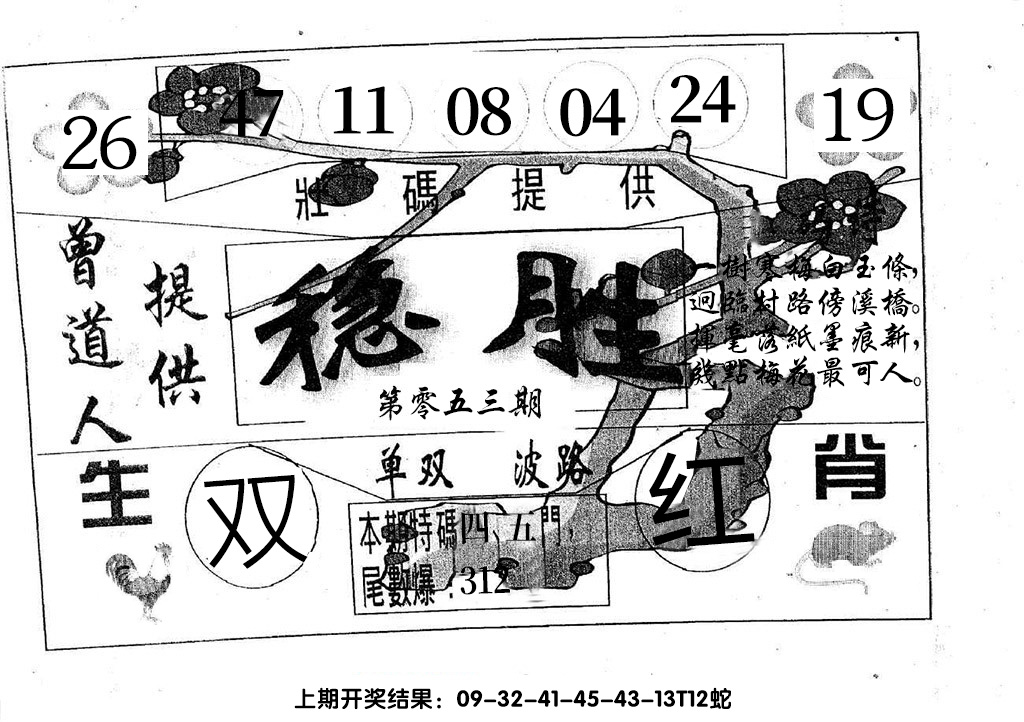 26 47 11 08 04 24 19
壯碼提供
特
曾道人
提供
稳胜
第零五三期
樹寒梅白玉條，
迥臨村路傍溪橋。
揮毫落紙墨痕新，
幾點梅花最可人。
单双 波路
双
红
生
肖
本期特碼四、五門，
尾數爆：312
上期开奖结果：09-32-41-45-43-13T12蛇